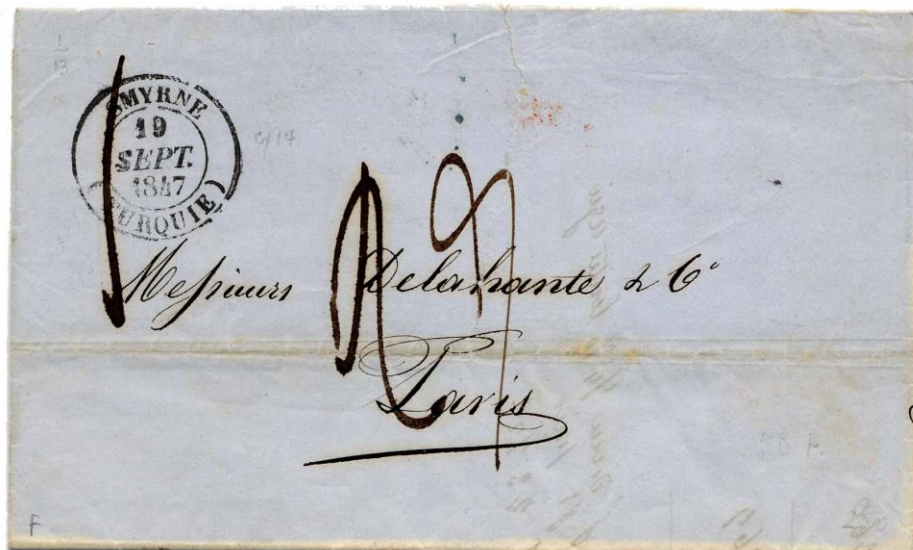 1
13
SMYRNE
19
SEPT.
1847
(TURQUIE)
Messieurs Delahante & Cᵒ
Paris
F